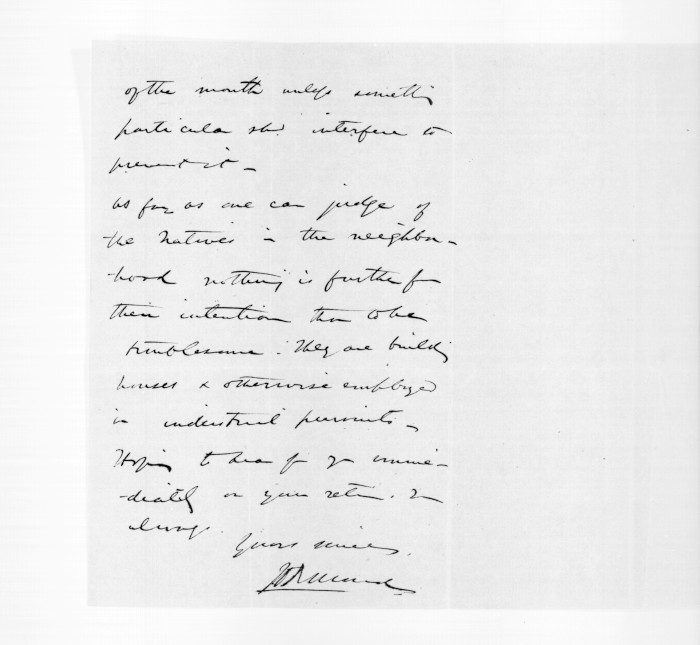 of the month unless somethg
particular shd. interfere to
prevent it –
as far as one can judge of
the Natives in the neighbor–
–hood nothing is further fm
their intention than to be
troublesome. They are building
houses & otherwise employed
in industrial pursuits –
Hoping to hear fm you imme–
–diately on your return. I am
always.
Yours sincerely.